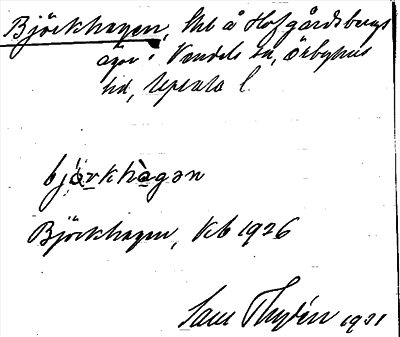 Björkhagen, lht å Hofgårdsbergs
ägor i Vendels sn, Örbyhus
hd, Uppsala l.
björkhagən
Björkhagen, Kb 1926
Sam Thydén 1931